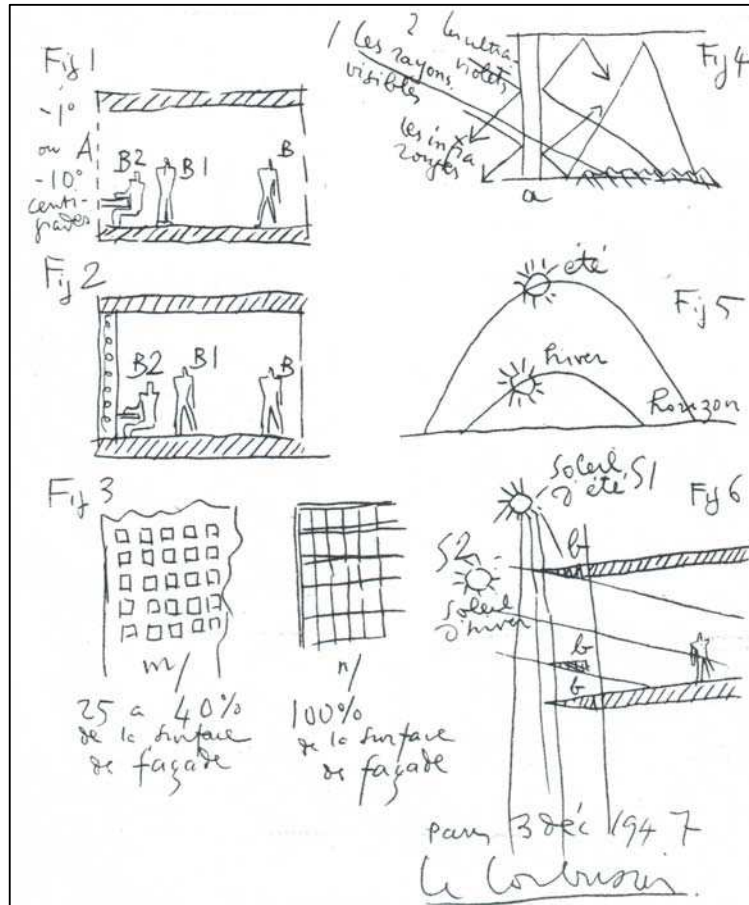 Fig 1
-1°
ou A
-10°
centi-
grades
B2
B1
B
Fig 2
B2
B1
B
Fig 3
m/
25 a 40%
de la surface
de façade
n/
100%
de la surface
de façade
Fig 4
1 les rayons
visibles
2 les ultra-
violets
les infra
rouges
a
Fig 5
été
hiver
horizon
Fig 6
soleil
d'été S1
S2
soleil
d'hiver
b
b
b
paris 3 déc 1947
Le Corbusier